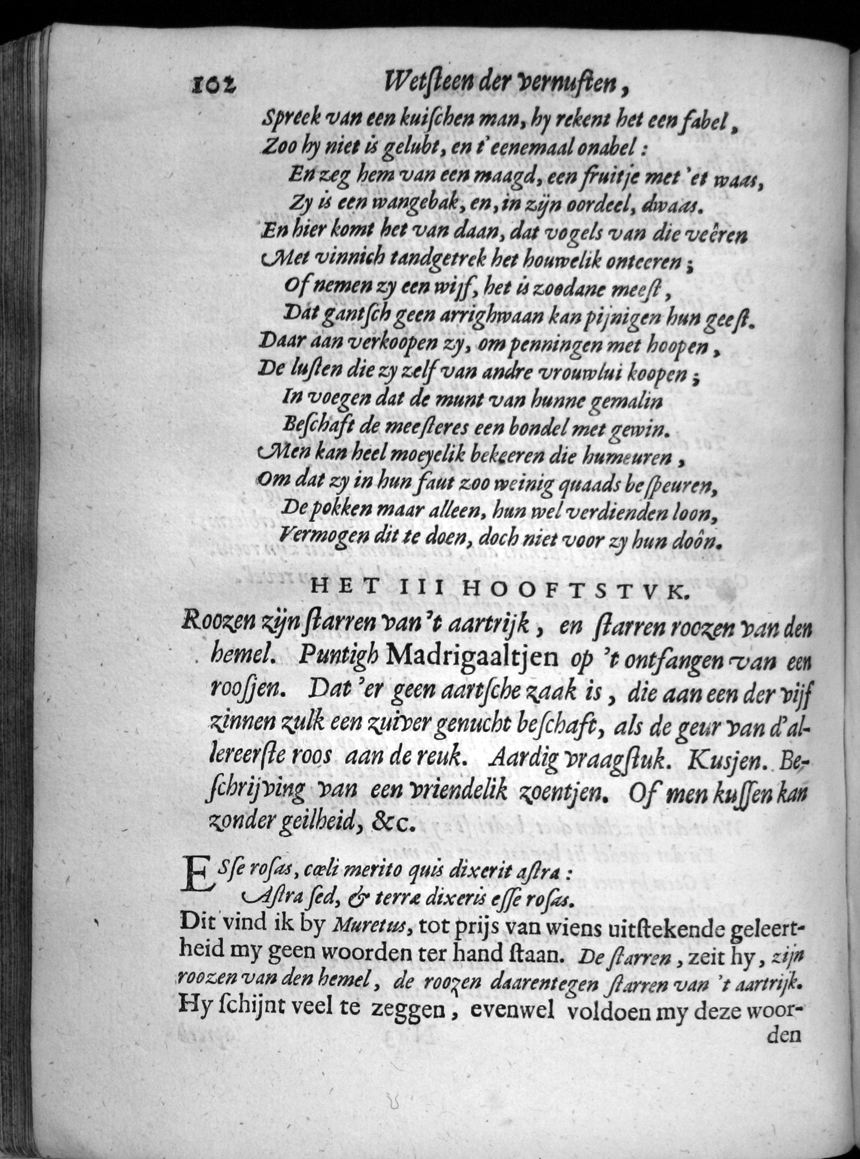 102 Wetſteen der vernuften,
Spreek van een kuiſchen man, hy rekent het een fabel,
Zoo hy niet is gelubt, en t'eenemaal onabel:
En zeg hem van een maagd, een fruitje met 'et waas,
Zy is een wangebak, en, in zijn oordeel, dwaas.
En hier komt het van daan, dat vogels van die veêren
Met vinnich tandgetrek het houwelik onteeren;
Of nemen zy een wijf, het is zoodane meeſt,
Dat gantſch geen arrighwaan kan pijnigen hun geeſt.
Daar aan verkoopen zy, om penningen met hoopen,
De luſten die zy zelf van andre vrouwlui koopen;
In voegen dat de munt van hunne gemalin
Beſchaft de meeſteres een bondel met gewin.
Men kan heel moeyelik bekeeren die humeuren,
Om dat zy in hun faut zoo weinig quaads beſpeuren,
De pokken maar alleen, hun wel verdienden loon,
Vermogen dit te doen, doch niet voor zy hun doôn.
HET III HOOFTSTVK.
Roozen zijn ſtarren van 't aartrijk, en ſtarren roozen van den
hemel. Puntigh Madrigaaltjen op 't ontfangen van een
rooſjen. Dat 'er geen aartſche zaak is, die aan een der vijf
zinnen zulk een zuiver genucht beſchaft, als de geur van d'al-
lereerſte roos aan de reuk. Aardig vraagſtuk. Kusjen. Be-
ſchrijving van een vriendelik zoentjen. Of men kuſſen kan
zonder geilheid, &c.
ESſe roſas, cœli merito quis dixerit aſtra:
Aſtra ſed, & terræ dixeris eſſe roſas.
Dit vind ik by Muretus, tot prijs van wiens uitſtekende geleert-
heid my geen woorden ter hand ſtaan. De ſtarren, zeit hy, zijn
roozen van den hemel, de roozen daarentegen ſtarren van 't aartrijk.
Hy ſchijnt veel te zeggen, evenwel voldoen my deze woor-
den